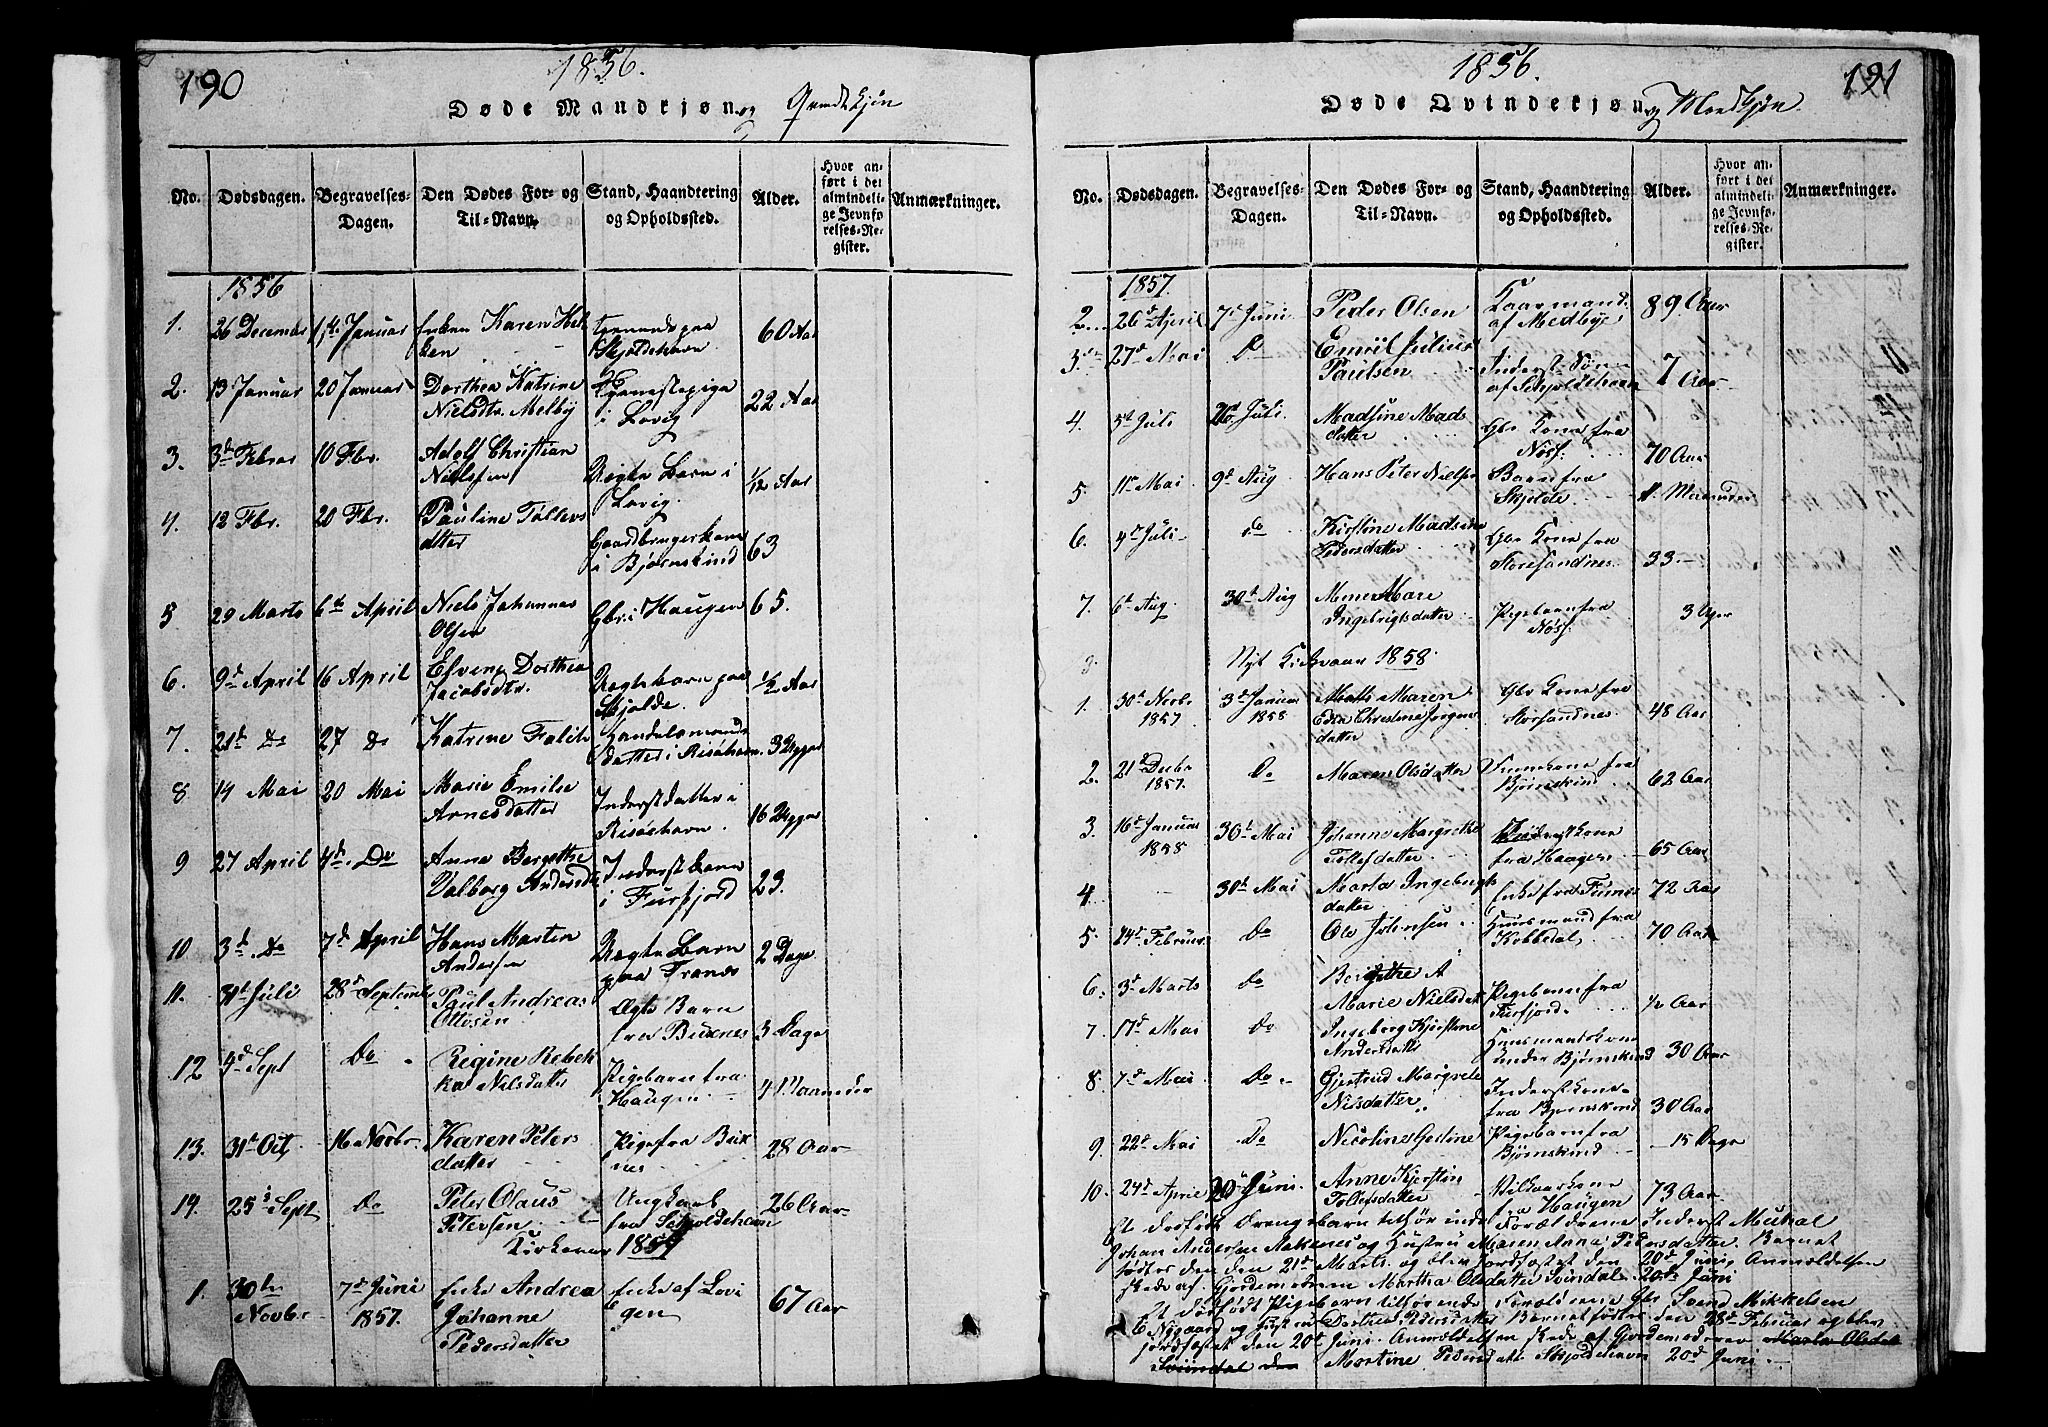 190
1856.
Døde Mandkjøn og Qvindekjøn
No.
Dødsdagen.
Begravelses-
Dagen.
Den Dødes For- og
Til-Navn.
Stand, Haandtering
og Opholdssted.
Alder.
Hvor an-
ført i det
almindeli-
ge Jevnfø-
relses-Re-
gister.
Anmærkninger.
1856
1. 26 December 1ste Januar Enken Karen Hel
60 Aar
Skjoldehavn
2. 13 Januar 20 Januar Dorthea Katrine Tjenestepiga
Nielsdtr. Melby i Lovig 22 Aar
3. 3d Februar 10 Fbr. Adolf Christian
Nielsen Uægte Barn i 1/12 Aar
Lovig
4. 12 Fbr. 20 Fbr. Pauline Tollevs
datter Gaardbrugerkone
i Bjørnskind 63
5 29 Marts 6te April Niels Johannes
Olsen Gbr. i Haugen 65.
6. 9d April 16 April Dorthea
Jacobsdtr. Uægte barn paa 1/2 Aar
Skjolde.
7. 21d Do 27 Do Katrine Falch Handelsmands
datter i Risøehavn. 3 Uger
8 14 Mai 20 Mai Marie Emilie
Arnesdatter Inderstdatter i
Risøehavn. 16 Uger
9 27 April 4d. Do Anne Bergethe
Valborg Andersdtr Inderstkone
i Fursfjord 23.
10 3d. Do 7d April Hans Martin
Andersen Uægte Barn
paa Tranes 2 Dage
11. 31t Juli 28d Septembr Paul Andreas
Olsen Ægte Barn
fra Buxnes 3 Dage
12 4d Sept Do Regine Rebek
ka Nilsdatter Pigebarn fra
Haugen 4 Maaneder
13. 31t Oct. 16 Novbr. Karen Peters
datter Pige fra Bux
nes 28 Aar
14. 25d Sept Do Peter Olaus
Petersen Ungkarl
fra Skjoldehavn 26 Aar
Kirkeaar 1857
1. 30te
Novbr. 7d Juni
1857. Enke Andrea
Johanne
Pedersdatter Enke af Lovi
gen 67 Aar
191
1856.
Døde Qvindekjøn og Mandkjøn.
No.
Dødsdagen.
Begravelses-
Dagen.
Den Dødes For- og
Til-Navn.
Stand, Haandtering
og Opholdssted.
Alder.
Hvor an-
ført i det
almindeli-
ge Jevnfø-
relses-Re-
gister.
Anmærkninger.
1857.
2. 26d April 7d Juni Peder Olsen Kaarmand
af Medbye 89 Aar
3. 27d Mai Do Emiil Julius
Paulsen Inderst Søn
af Skjoldehavn 7 Aar
4. 5d Juli 26d Juli. Madsine Mads
datter Gbr Kone fra
Nøss. 70 Aar
5. 11te Mai 9d Aug Hans Peter Nielsen Barn fra
Skjolde 11. Maaneder
6. 4d Juli Do Kirstine Madsine
Pedersdatter Gbr Kone fra
Storesandnes 33.
7. 6d Aug. 30d Aug Mare
Ingebrigtsdatter Pigebarn fra
Nøss. 3 Uger
Nyt Kirkeaar 1858.
1. 30d Novbr
1857 3d Januar
1858 Maren
Christina Jørgens
datter Gbr Kone fra
Storsandnes 48 Aar
2. 21d Decbr
1857. Do Maren Olsdatter Kone fra
Bjørnskind 62 Aar
3. 16d Januar
1858 30d Mai Johanna Margrethe
Tollefsdatter Inderstkone
fra Haugen 65 Aar
4 30d Mai Marta Ingebrigts
datter Enke fra 72 Aar
5. 24d Februar Do Ole Johnsen Huusmand fra
Kobbedal 70 Aar
6. 3d Marts Do Bergethe A
Marie Nielsdat Pigebarn fra
Fursfjord 1/2 Aar
7. 17d Mai Do Ingeborg Kjerstine
Andersdatter Huusmandskone
under Bjørnskind 30 Aar
8. 7d Mai Do Gjertrud Margrete
Nilsdatter Inderstkone
fra Bjørnskind 30 Aar
9. 22d Mai Do Nicoline Gortine Pigebarn fra
Bjørnskind 15 Dage
10. 24d April 20d Juni. Anne Kjerstin
Tollefsdatter Vilkaarskone
fra Haugen 73 Aar
Et dødfødt Drengebarn tilhørende Forældrene Inderst Mikal
Johan Andersen Aaknes og Hustru Maren Anna Pedersdatter. Barnet
fødtes den 21d Marts og blev jordfæstet den 20d Juni, Anmeldelsen
skede af Gjordemoderen Martha Olsdatter Svindal 20d Juni
Et dødfødt Pigebarn tilhørende Forældrene Gbr Svend Mikkelsen
Nygaard og Hustru Dorthea Pedersdatter Barnet fødtes den 28d Februar og blev
jordfæstet den 20d Juni. Anmeldelsen skede af Gjordemoderen Marta Olsdat
Svindal den Martine Pedersdatr Skjoldehavn 20d Juni